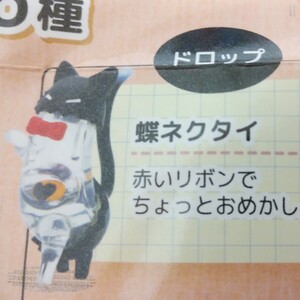 種
ドロップ
蝶ネクタイ
赤いリボンで
ちょっとおめかし